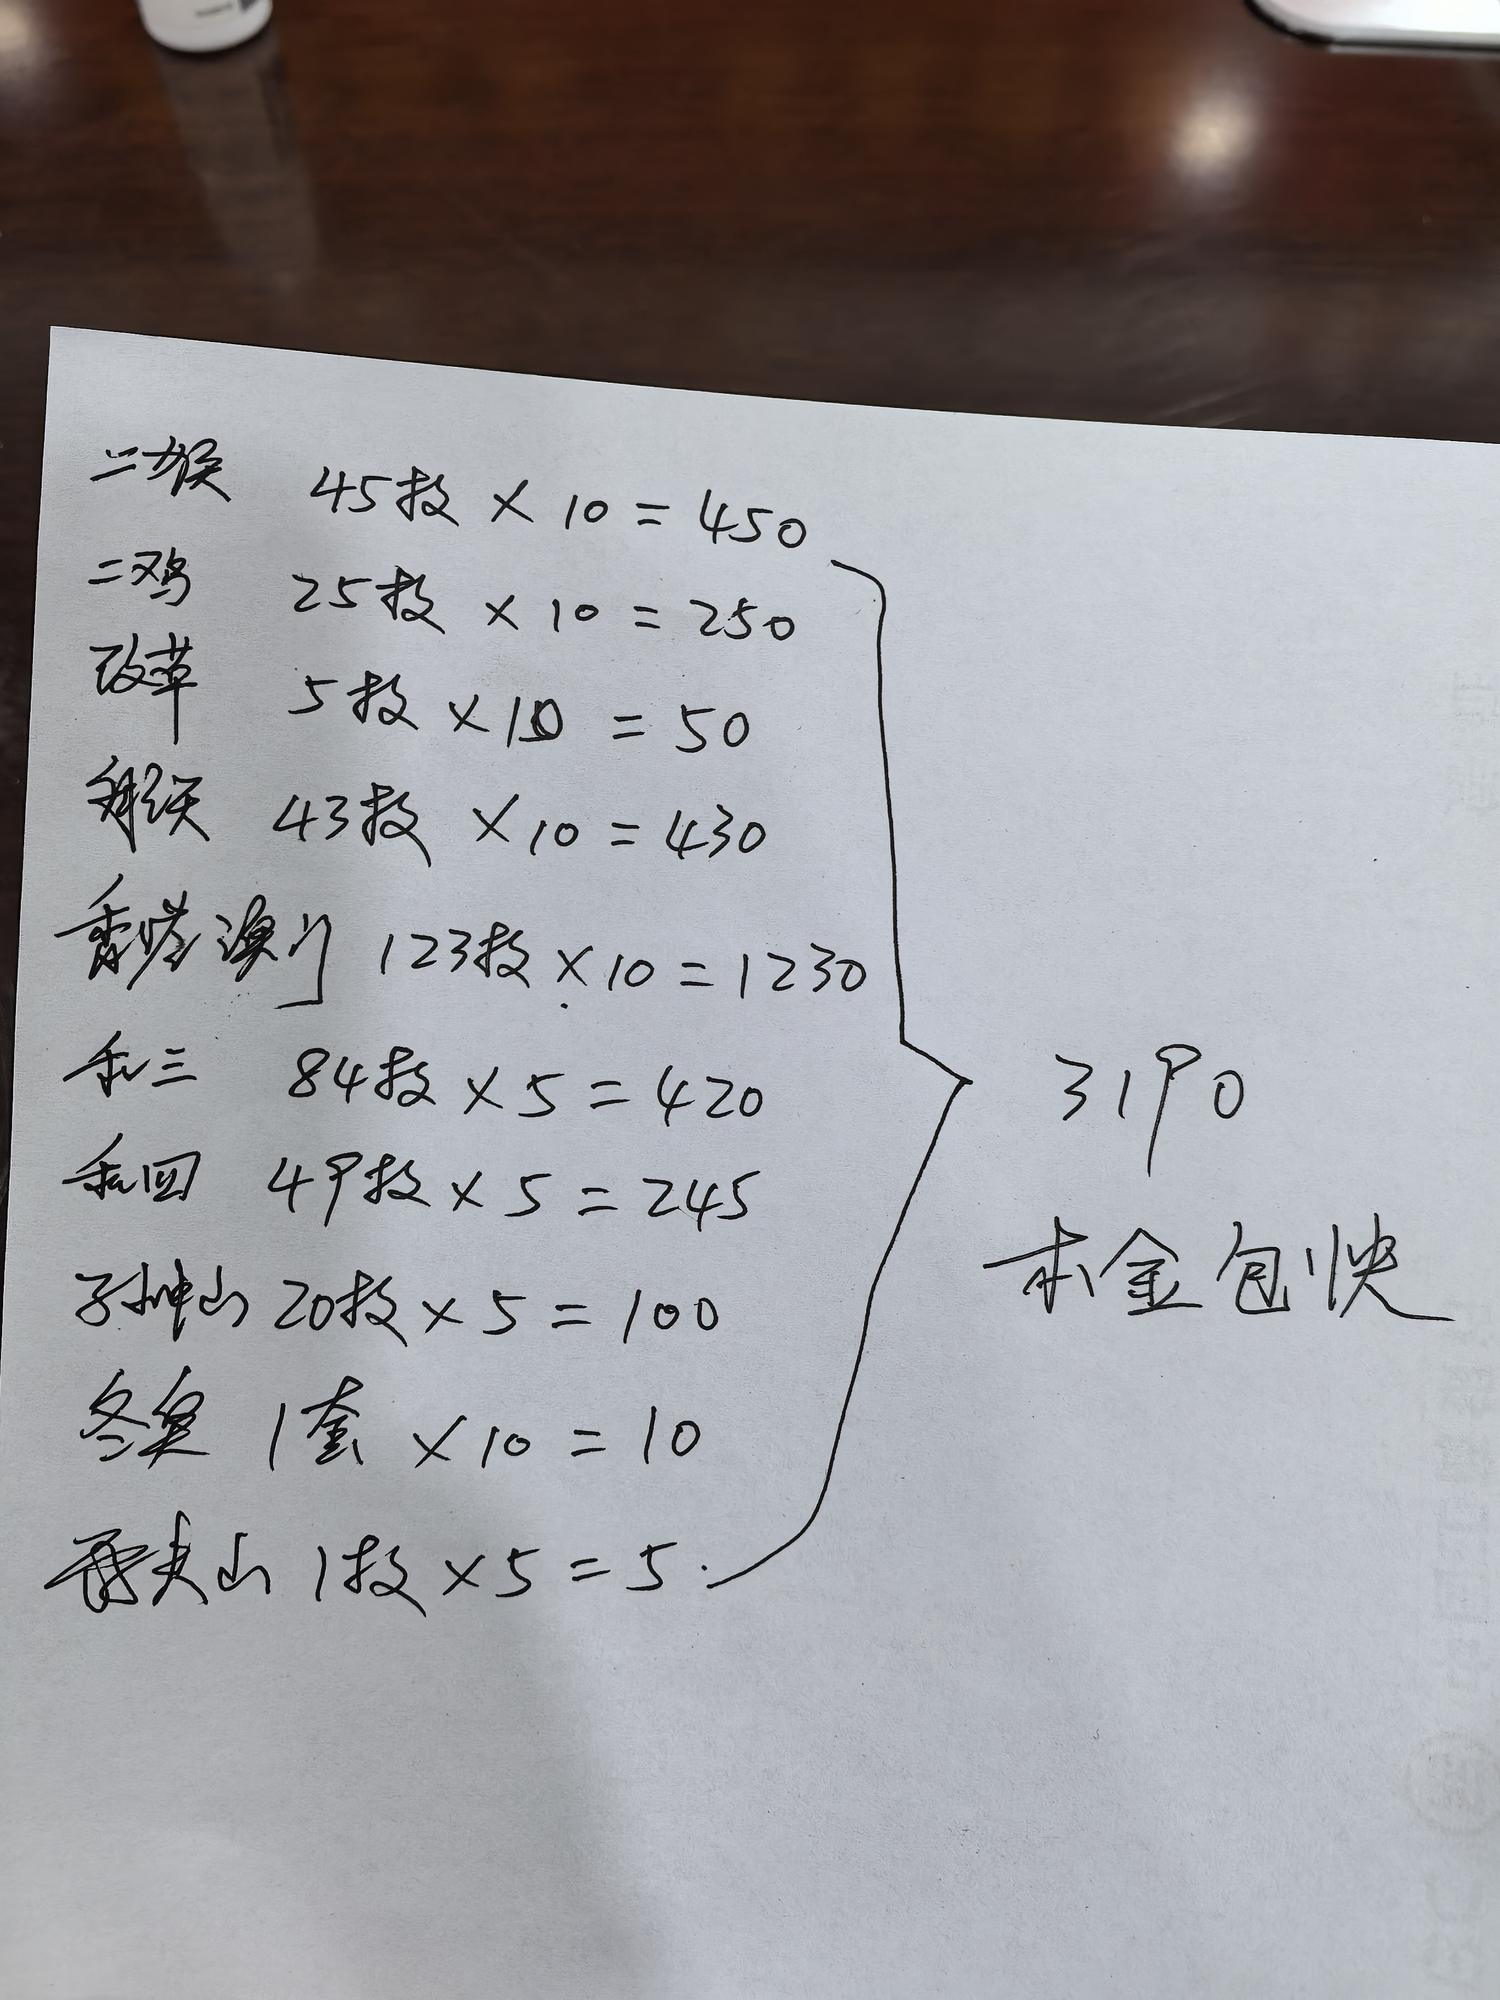 二猴 45枚 × 10 = 450
二鸡 25枚 × 10 = 250
改革 5枚 × 10 = 50
航天 43枚 × 10 = 430
香港澳门 123枚 × 10 = 1230
和三 84枚 × 5 = 420
和四 49枚 × 5 = 245
孙中山 20枚 × 5 = 100
冬奥 1套 × 10 = 10
武夷山 1枚 × 5 = 5.
3190
本金包快